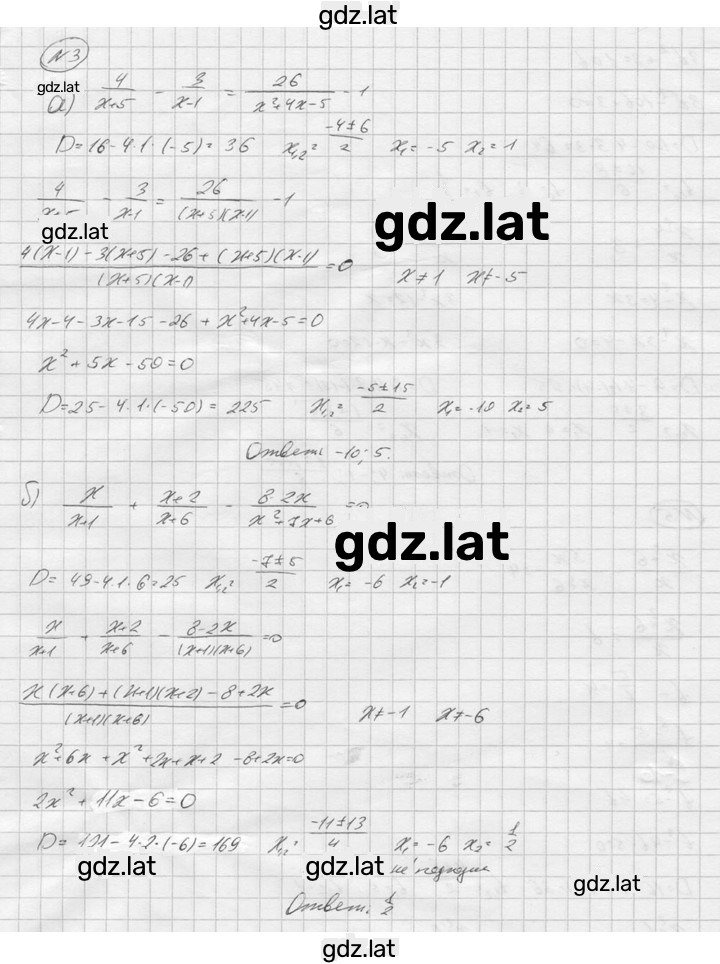 gdz.lat
N3
gdz.lat
а) 4/(x+5) - 3/(x-1) = 26/(x²+4x-5) - 1
D=16-4·1·(-5)=36 x₁,₂=(-4±6)/2 x₁=-5 x₂=1
4/(x+5) - 3/(x-1) = 26/((x+5)(x-1)) - 1
gdz.lat
(4(x-1)-3(x+5)-26+(x+5)(x-1))/((x+5)(x-1))=0 x≠1 x≠-5
4x-4-3x-15-26+x²+4x-5=0
x²+5x-50=0
D=25-4·1·(-50)=225 x₁,₂=(-5±15)/2 x₁=-10 x₂=5
Ответ: -10; 5.
б) x/(x+1) + (x+2)/(x+6) - (8-2x)/(x²+7x+6)=0
gdz.lat
D=49-4·1·6=25 x₁,₂=(-7±5)/2 x₁=-6 x₂=-1
x/(x+1) + (x+2)/(x+6) - (8-2x)/((x+1)(x+6))=0
(x(x+6)+(x+1)(x+2)-8+2x)/((x+1)(x+6))=0 x≠-1 x≠-6
x²+6x+x²+2x+x+2-8+2x=0
2x²+11x-6=0
D=121-4·2·(-6)=169 x₁,₂=(-11±13)/4 x₁=-6 x₂=1/2
не подходит
gdz.lat gdz.lat gdz.lat
Ответ: 1/2
gdz.lat